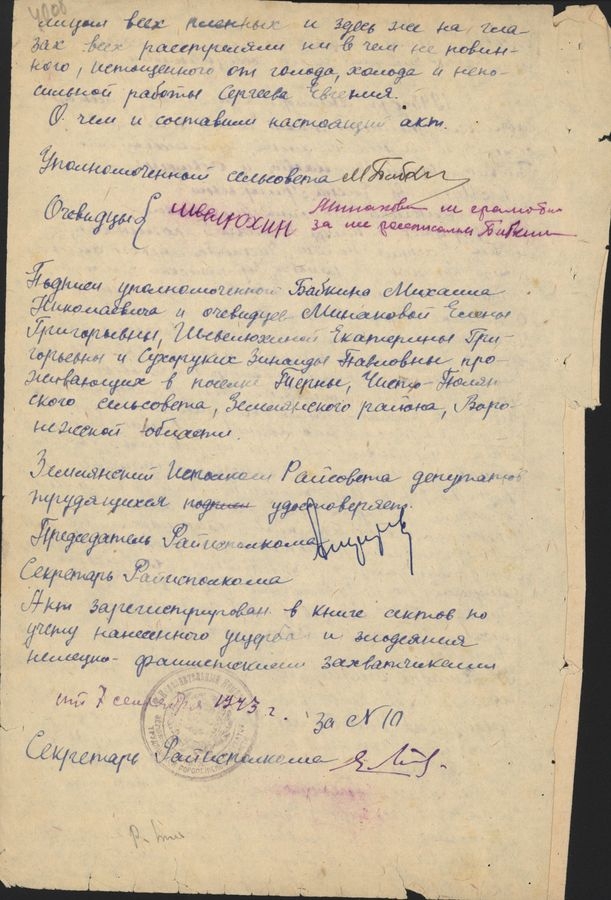 лицом всех пленных и здесь же на гла-
зах всех расстреляли ни в чем не повин-
ного, истощенного от голода, холода и непо-
сильной работы Сергеева Евгения.
О чем и составили настоящий акт.
Уполномоченный сельсовета М Бабкин
Очевидцы { Минакова не грамотн
за не рассписался Бабкин
Подписи уполномоченной Бабкина Михаила
Николаевича и очевидцев Минаковой Елены
Григорьевны, Шевелюхиной Екатерины Гри-
горьевны и Сухоруких Зинаиды Павловны про-
живающих в поселке Терны, Чисто-Полян
ского сельсовета, Землянского района, Воро-
нежской области.
Землянский Исполком Райсовета депутатов
трудящихся подписи удостоверяет.
Председатель Райисполкома
Секретарь Райисполкома
Акт зарегистрирован в книге актов по
учету нанесенного ущерба и злодеяния
немецко-фашистскими захватчиками
от 7 сентября 1943 г. за № 10
Секретарь Райисполкома